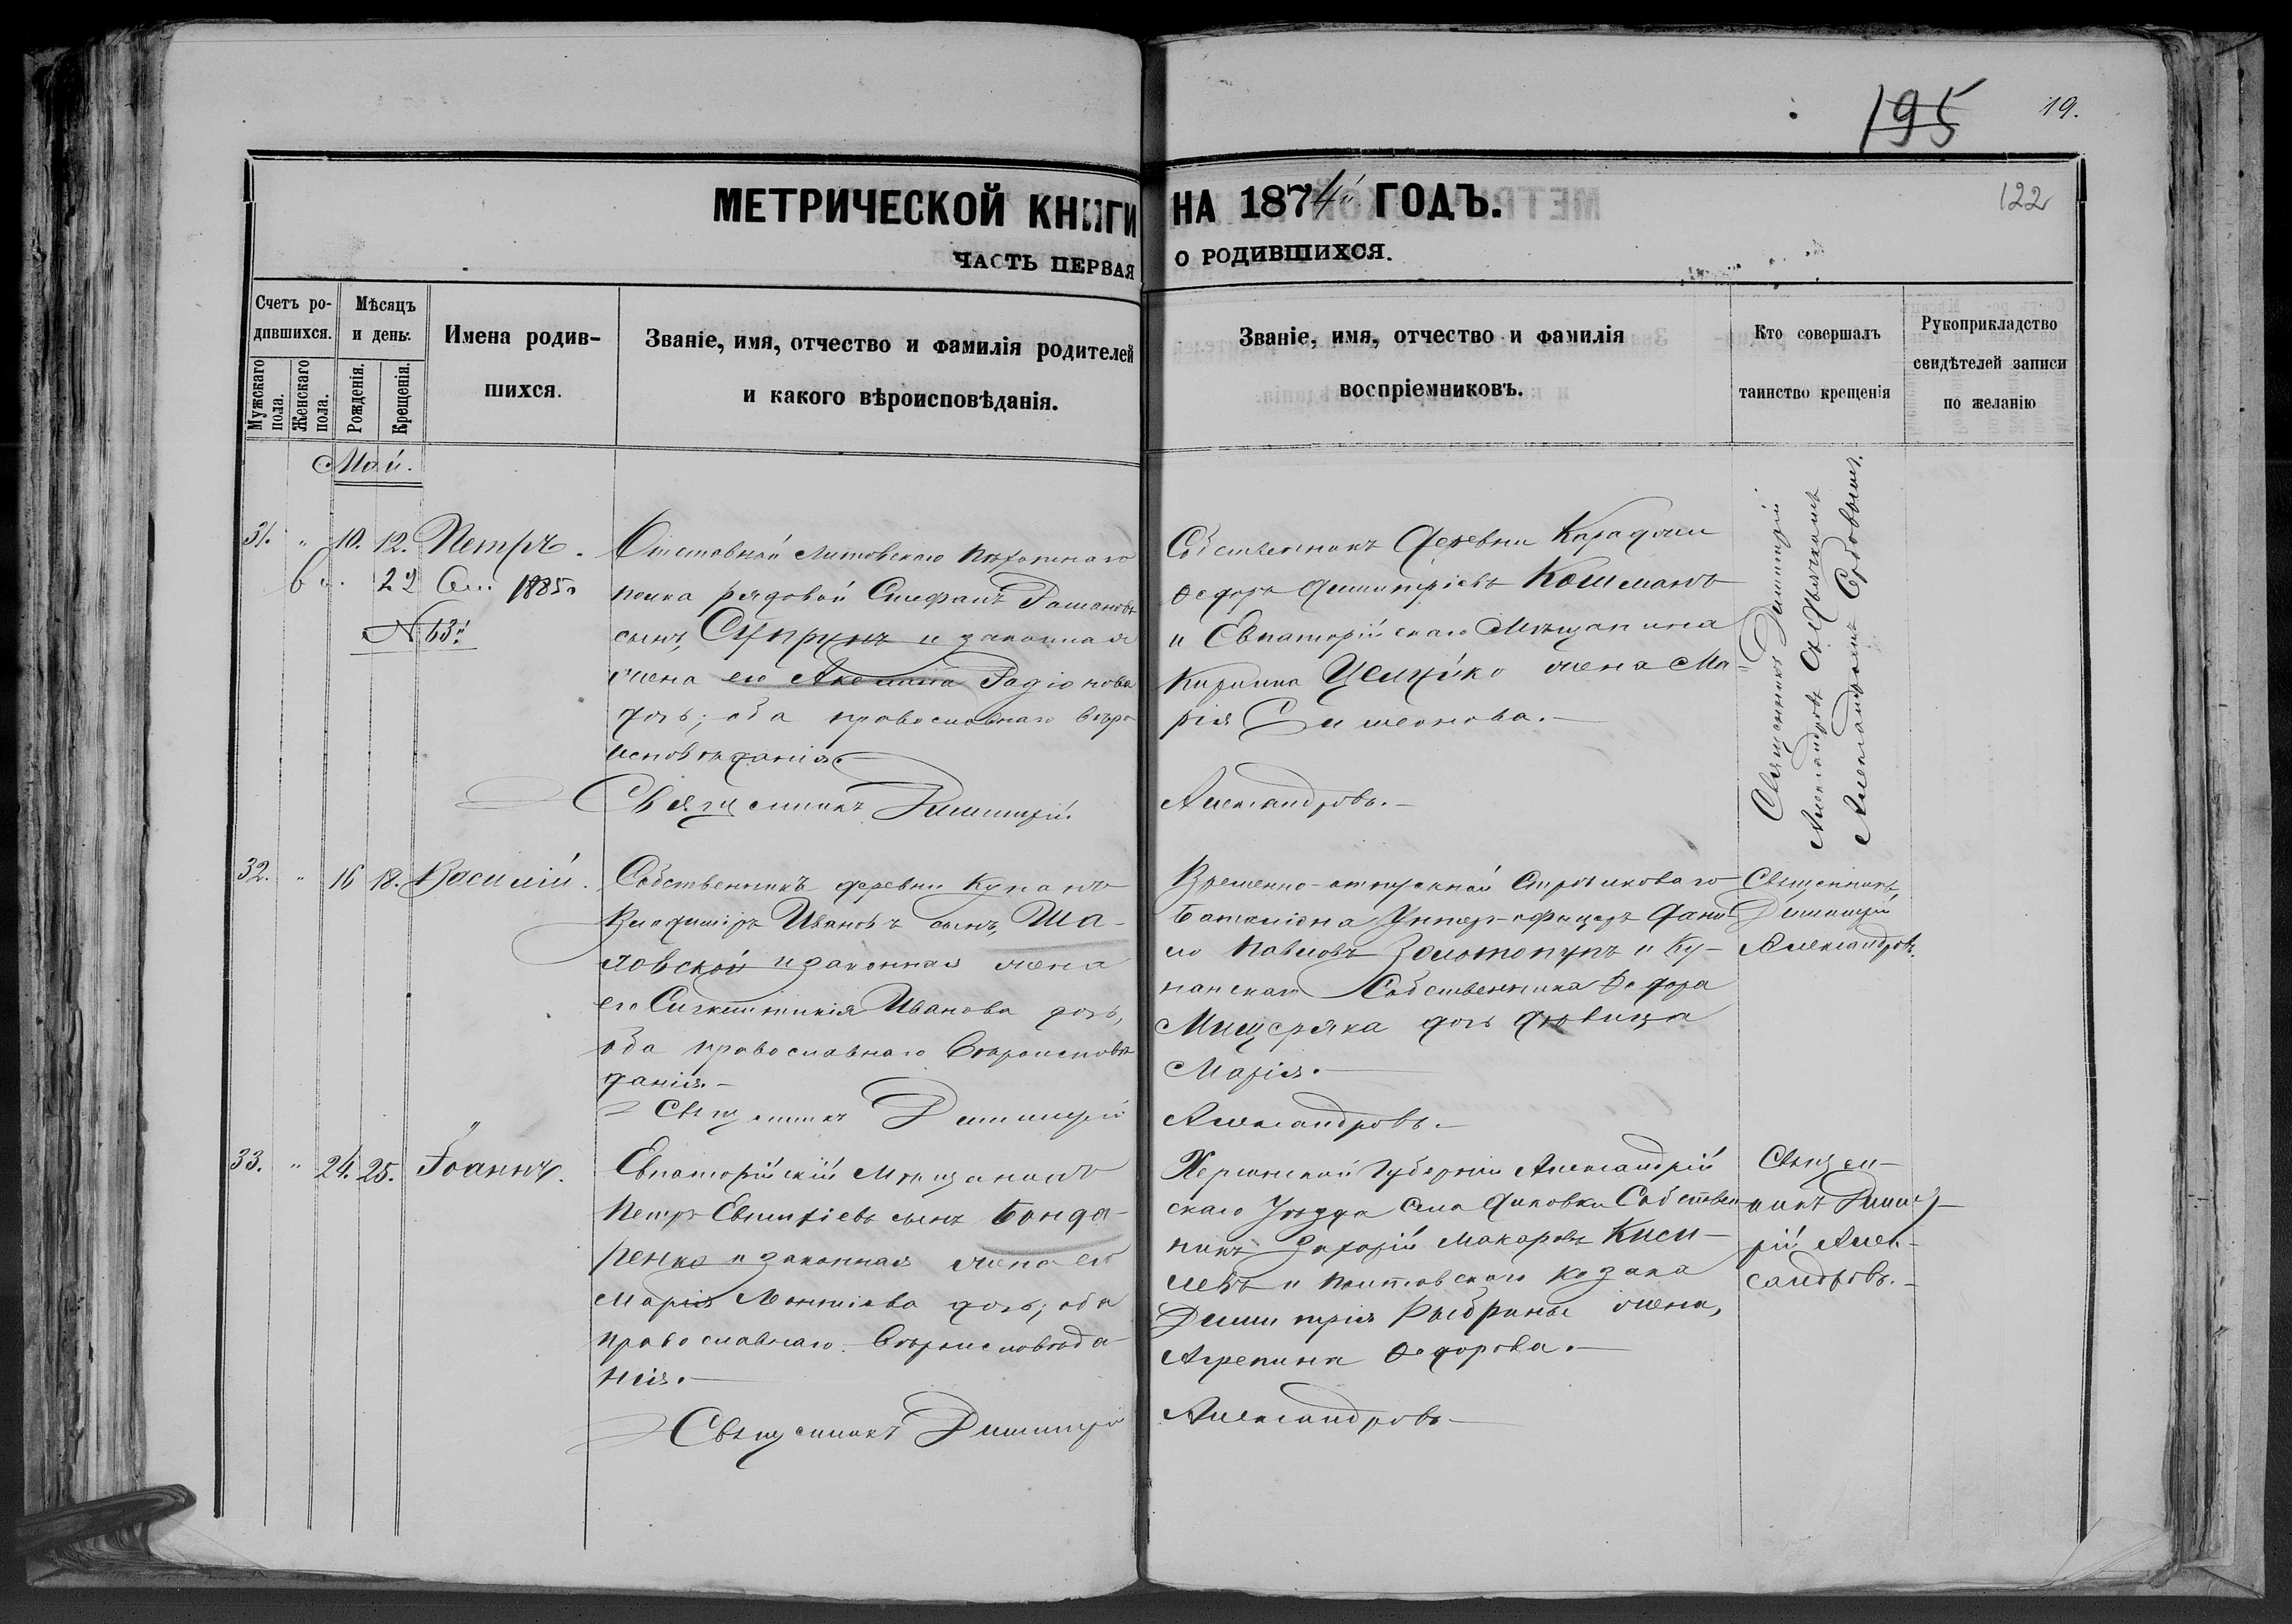 195
19.
122
МЕТРИЧЕСКОЙ КНИГИ НА 1874 ГОДЪ.
ЧАСТЬ ПЕРВАЯ О РОДИВШИХСЯ.
Счетъ ро-
дившихся.
Мужскаго пола.
Женскаго пола.
Мѣсяцъ
и день.
Рожденія.
Крещенія.
Имена родив-
шихся.
Званіе, имя, отчество и фамилія родителей
и какого вѣроисповѣданія.
Званіе, имя, отчество и фамилія
воспріемниковъ.
Кто совершалъ
таинство крещенія
Рукоприкладство
свидѣтелей записи
по желанію
Май.
31. " 10. 12. Петръ.
22 1885
№ 63
Отставной Литовскаго Пѣхотнаго
полка рядовой Стефанъ Романовъ
сынъ, Супрунъ и законная
жена его Акелина Родіонова
дочь; оба православнаго вѣро
исповѣданія
Священникъ Димитрій
Собственникъ деревни
Ѳедоръ Димитріевъ Кошманъ
и Евпаторійскаго Мѣщанина
Кирилла жена Ма-
рія Симеонова.
Александровъ.
Священникъ Димитрій
Александровъ съ
Александромъ
32. " 16 18. Василій.
Собственникъ деревни Кунанъ
Владиміръ Ивановъ сынъ, Ша-
ловской и законная жена
его Синклитикія Иванова дочь,
оба православнаго Вѣроисповѣ
данія.
Священникъ Димитрій
Временно-отпускной Стрѣлковаго
Баталіона Унтеръ-офицеръ Дани
ло Павловъ Золотопупъ и Ку-
нанскаго Собственника Ѳедора
Мищеряка дочь дѣвица
Марія.
Александровъ.
Священникъ
Димитрій
Александровъ.
33. " 24. 25. Іоаннъ.
Евпаторійскій Мѣщанинъ
Петръ Евтихіевъ сынъ Бонда-
ренко и законная жена его
Марія Леонтіева дочь; оба
православнаго Вѣроисповѣда-
нія.
Священникъ Димитрій
Херсонской Губерніи Александрій
скаго Уѣзда села Диковки Собствен
никъ Захарій Макаровъ Кисе-
левъ и Полтавскаго козака
Димитрія Рыбраны жена,
Агрепина Ѳедорова.
Александровъ
Священ-
никъ Димит-
рій Алек-
сандровъ.